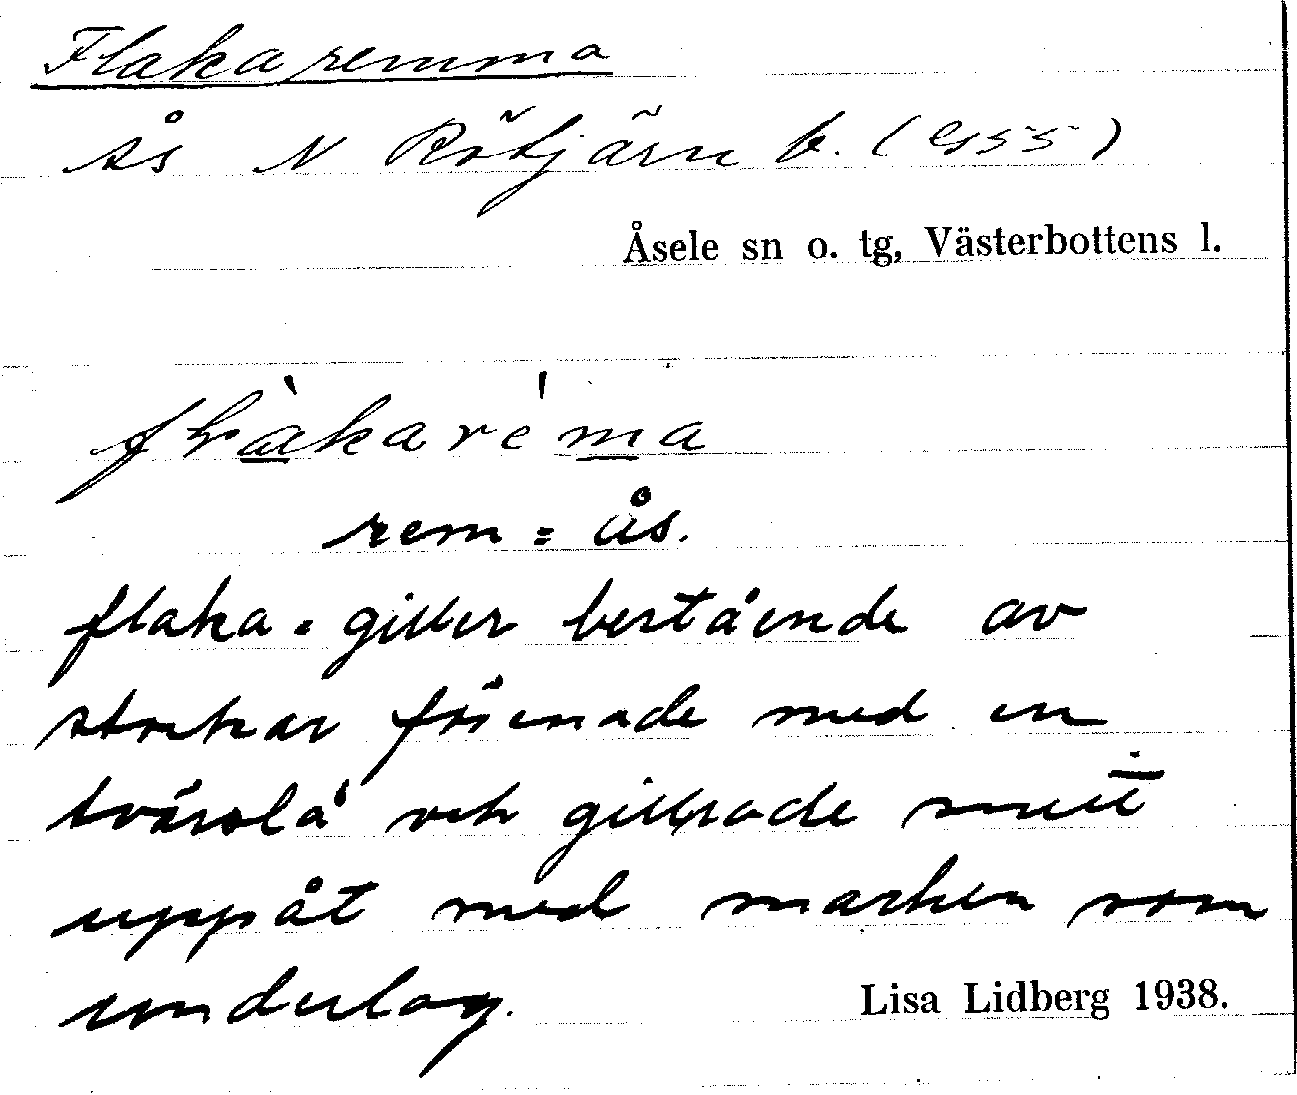 Flakaremma
ås N Rötjärn b. (G55)
Åsele sn o. tg, Västerbottens l.
flàkaréma
rem = ås.
flaka = giller bestående av
stockar förenade med en
tvärslå och gillrade snett
uppåt med marken som
underlag.
Lisa Lidberg 1938.